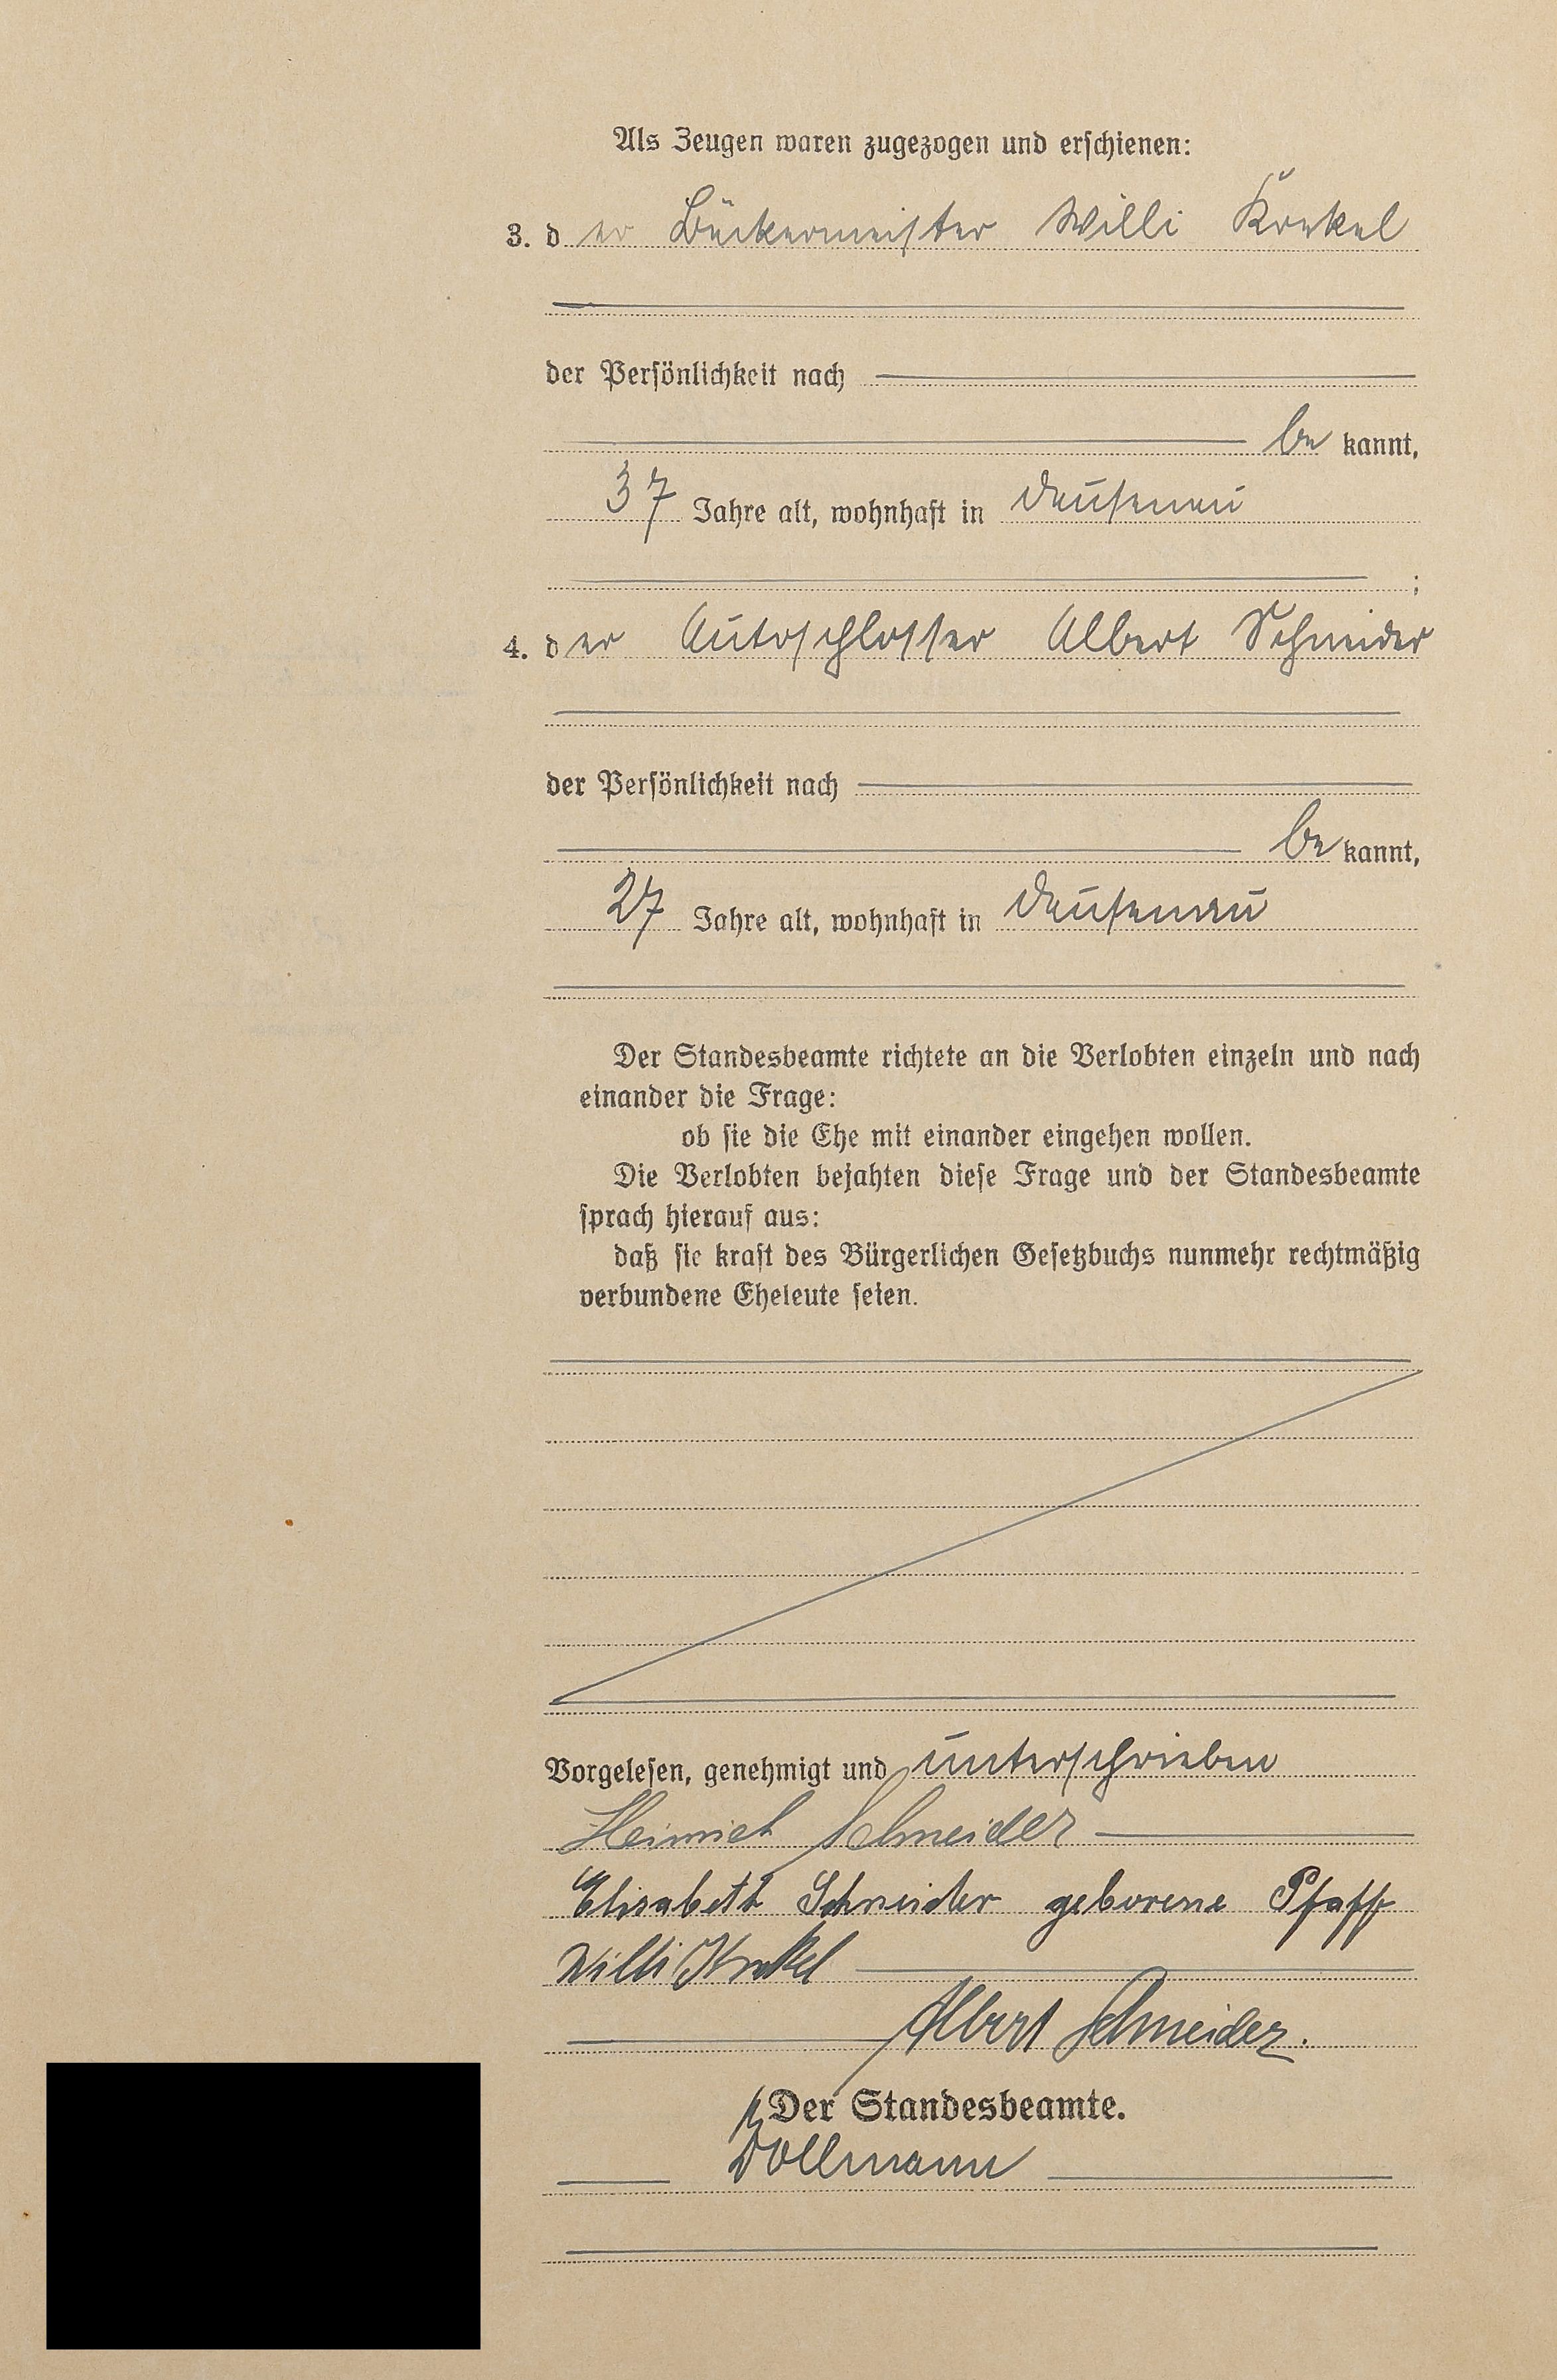 Als Zeugen waren zugezogen und erschienen:
3. der Bäckermeister Willi Kunkel
der Persönlichkeit nach
be kannt,
37 Jahre alt, wohnhaft in Dausenau
;
4. der Autoschlosser Albert Schneider
der Persönlichkeit nach
be kannt,
27 Jahre alt, wohnhaft in Dausenau
Der Standesbeamte richtete an die Verlobten einzeln und nach
einander die Frage:
ob sie die Ehe mit einander eingehen wollen.
Die Verlobten bejahten diese Frage und der Standesbeamte
sprach hierauf aus:
daß sie kraft des Bürgerlichen Gesetzbuchs nunmehr rechtmäßig
verbundene Eheleute seien.
Vorgelesen, genehmigt und unterschrieben
Heinrich Schneider
Elisabeth Schneider geborene Pfaff
Willi Kunkel
Albert Schneider.
Der Standesbeamte.
Dollmann